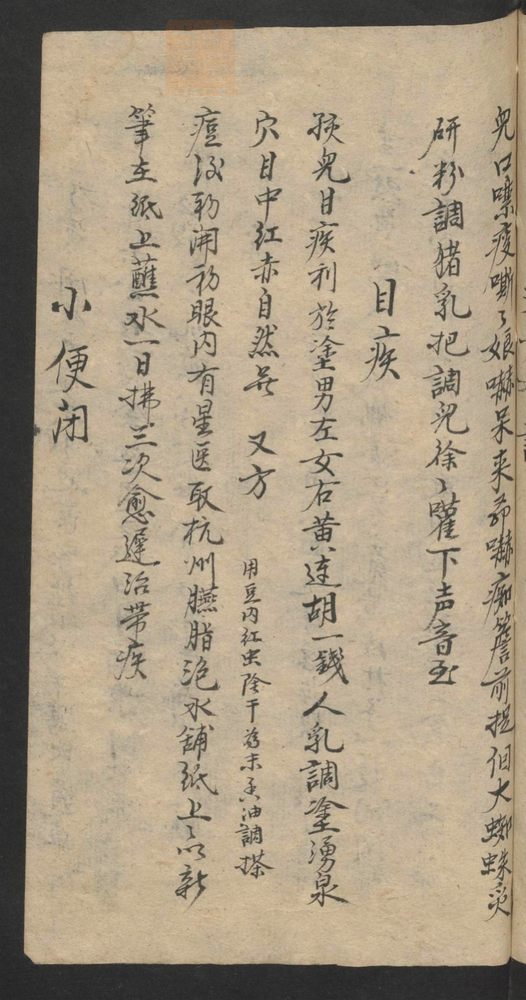 兒口噤疫嘶〻娘嚇呆来爺嚇痴簷前捉個大蜘蛛炙
研粉調猪乳把調兒徐〻嚾下声音至
目疾
孩兒目疾利於塗男左女右黄連胡一錢人乳調塗湧泉
穴目中紅赤自然無 又方
用豆内紅虫陰干為末香油調搽
痘後初開初眼内有星医取杭州臙脂泡水舖紙上以新
筆在紙上蘸水一日拂三次愈遲治帶疾
小便閉